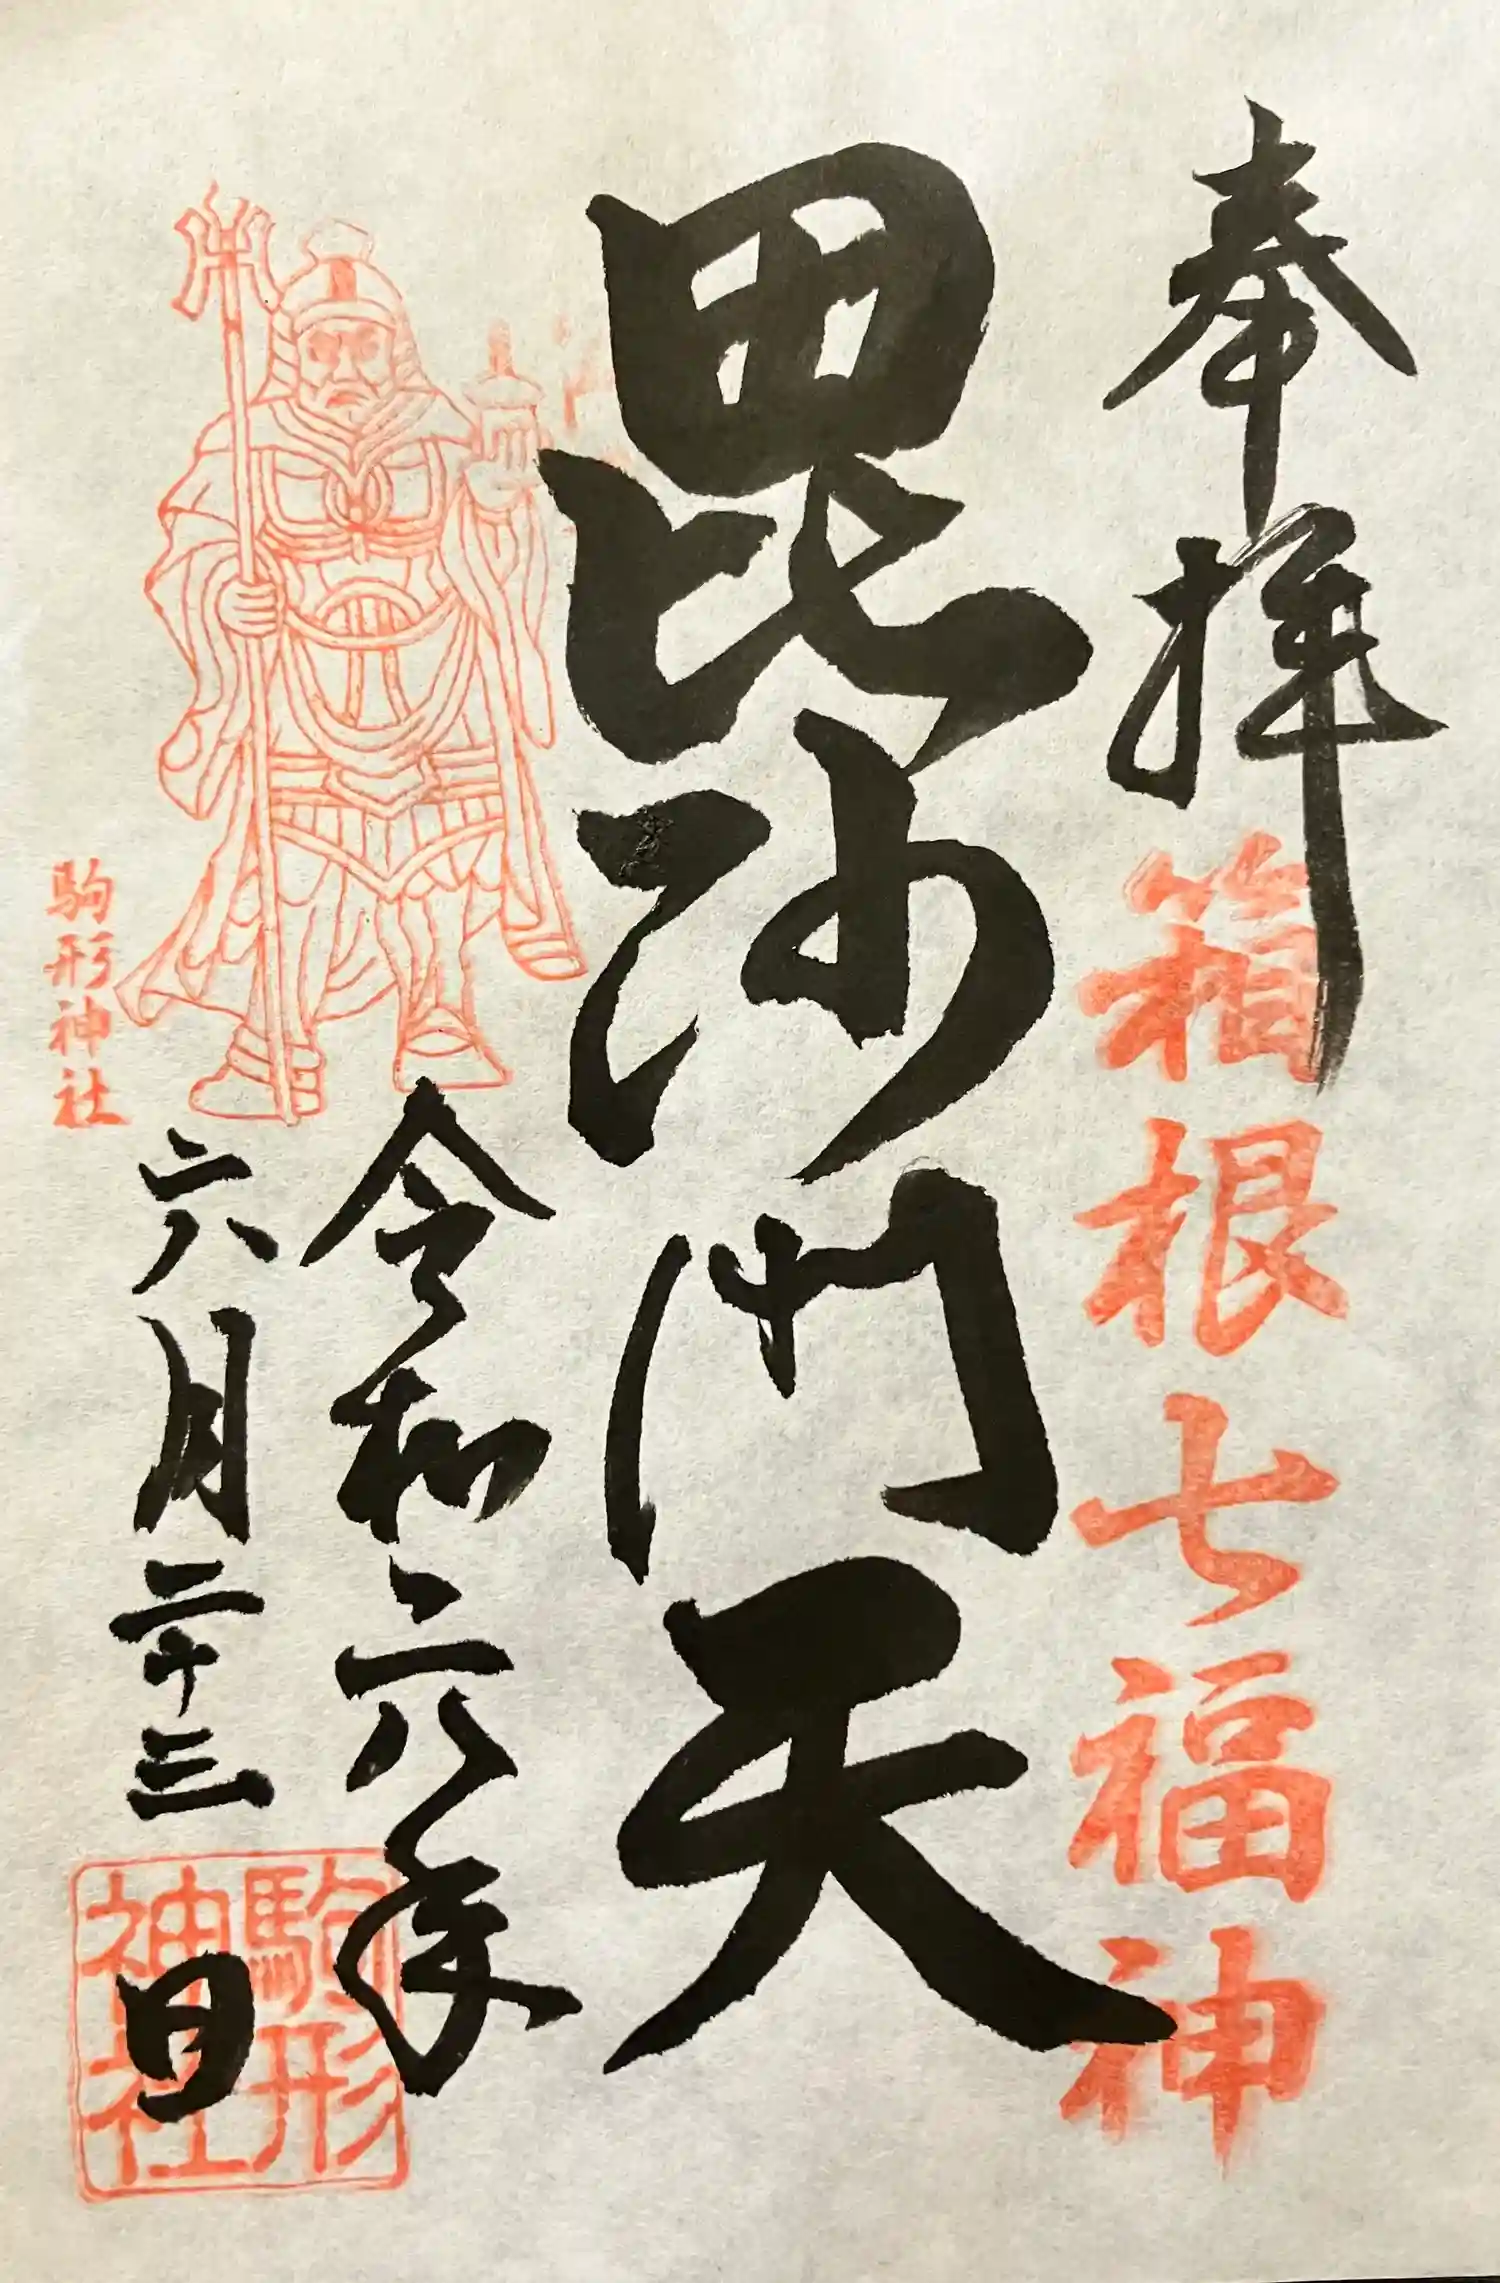 奉拝
箱根七福神
毘沙門天
令和六年
六月二十三日
駒形神社
駒形
神社